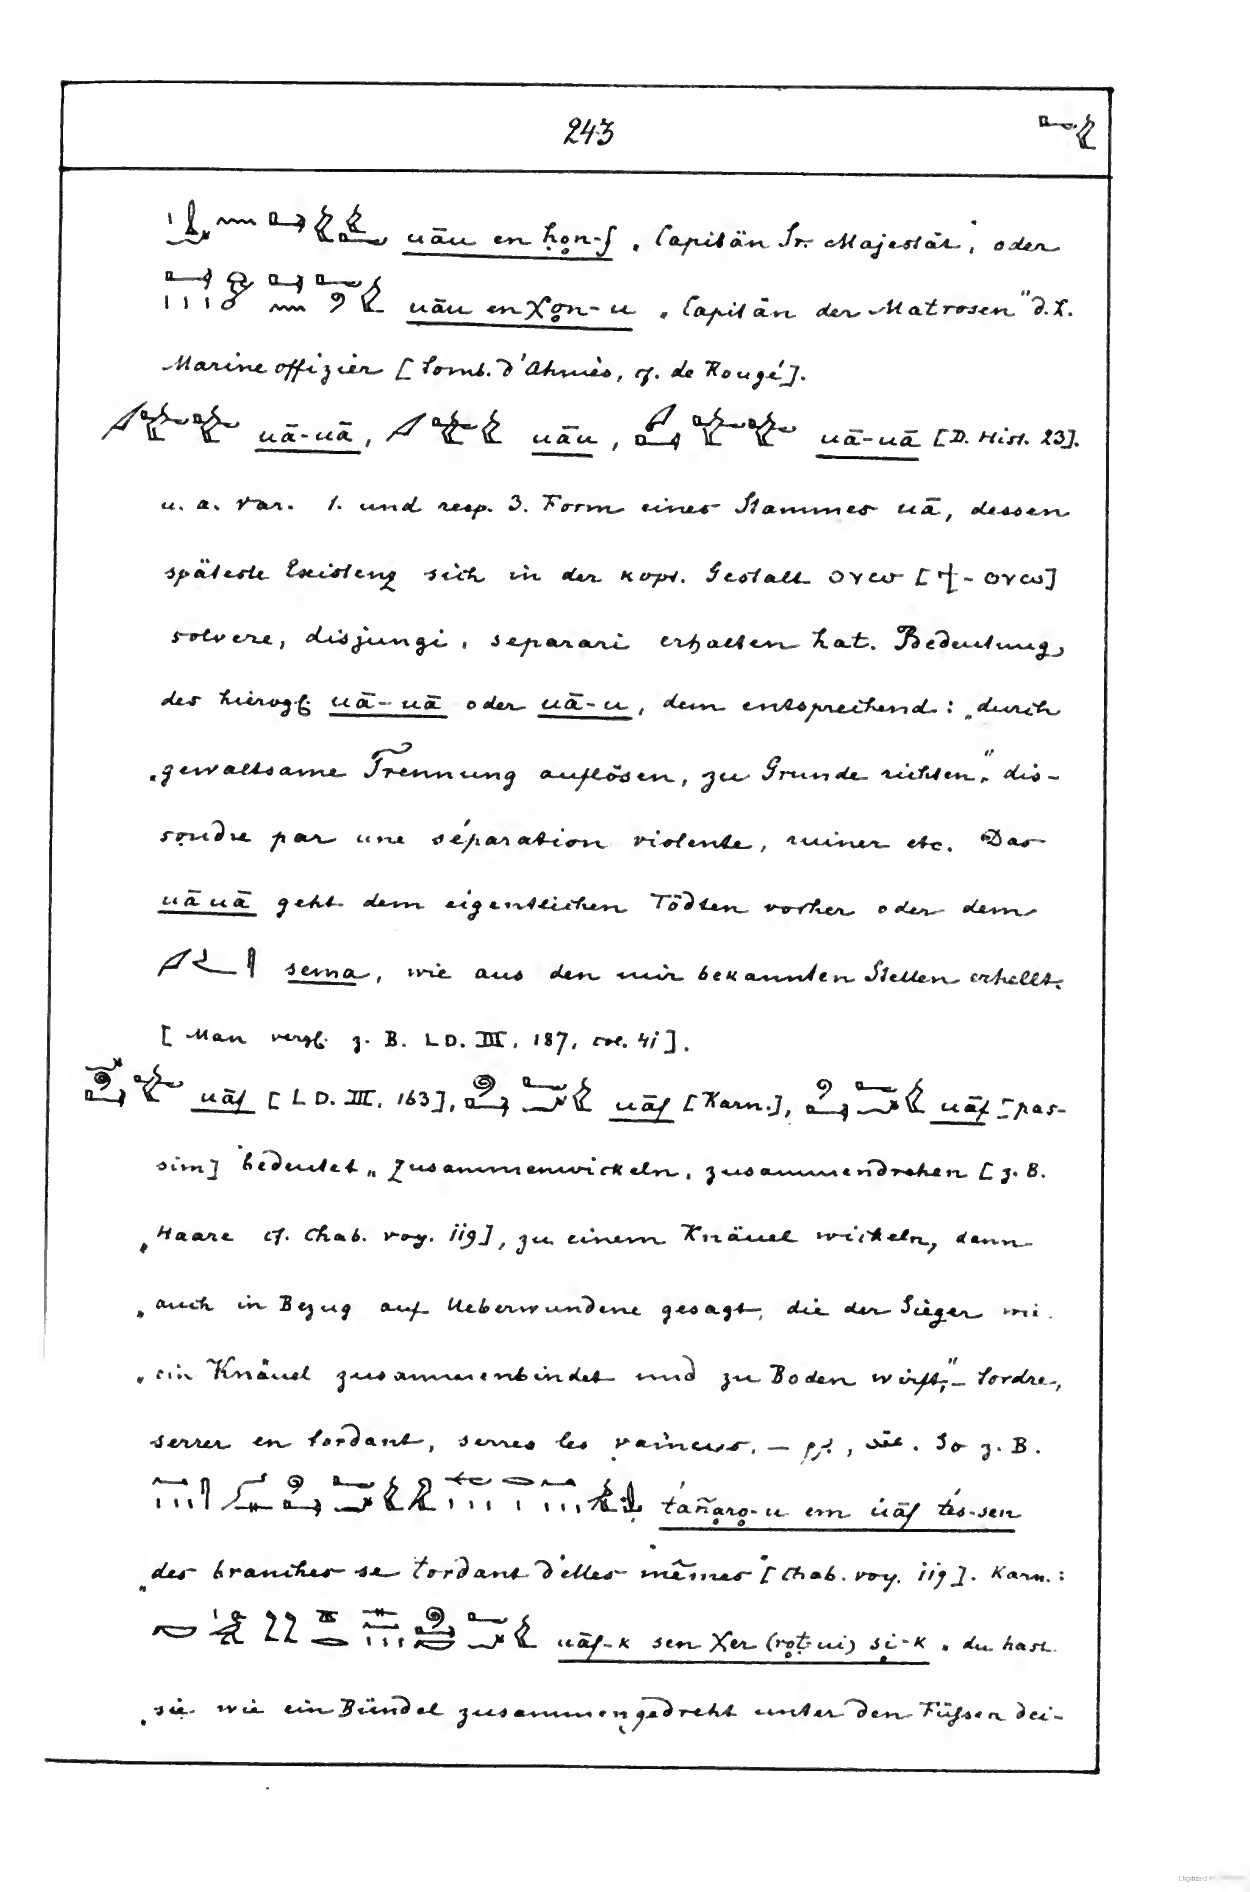 243
uāu en ḥon-f „Capitän Sr. Majestät“, oder
uāu en Xon-u „Capitän der Matrosen“ d. h.
Marine offizier [tomb. d'Ahmès, cf. de Rougé].
uā-uā, uāu, uā-uā [D. Hist. 23].
u. a. var. 1. und resp. 3. Form eines Stammes uā, dessen
späteste Existenz sich in der kopt. Gestalt ⲟⲩⲱ [ϯ-ⲟⲩⲱ]
solvere, disjungi, separari erhalten hat. Bedeutung
des hierogl. uā-uā oder uā-u, dem entsprechend: „durch
„gewaltsame Trennung auflösen, zu Grunde richten“, dis-
soudre par une séparation violente, ruiner etc. Das
uāuā geht dem eigentlichen Tödten vorher oder dem
sema, wie aus den mir bekannten Stellen erhellt.
[Man vergl. z. B. LD. III, 187, col. 41].
uāf [LD. III, 163], uāf [Karn.], uāf [pas-
sim] bedeutet „zusammenwickeln, zusammendrehen [z. B.
„Haare cf. Chab. voy. 119], zu einem Knäuel wickeln, dann
„auch in Bezug auf Ueberwundene gesagt, die der Sieger wie
„ein Knäuel zusammenbindet und zu Boden wirft,“ – tordre,
serrer en tordant, serrer les vaincus, – So z. B.
-u em uāf tes-sen
„des branches se tordant d'elles mêmes“ [Chab. voy. 119]. Karn.:
uāf-k sen Xer (rot-ui) si-k „du hast
„sie wie ein Bündel zusammengedreht unter den Füssen dei-